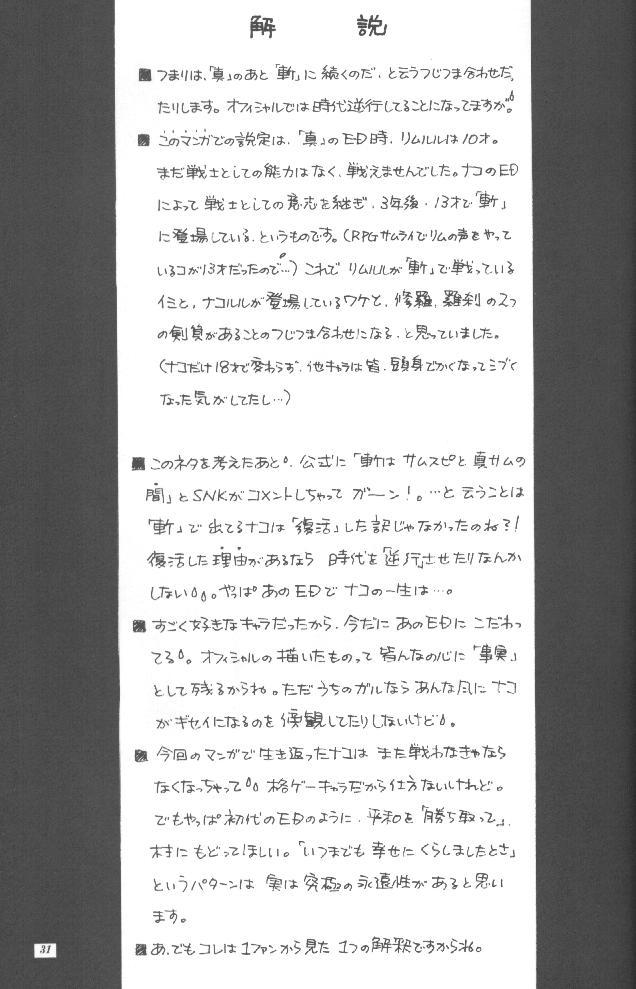 解説
■つまりは、「真」のあと「斬」に続くのだ、と云うつじつま合わせだっ
たりします。オフィシャルでは時代逆行してることになってますが。
■このマンガでの設定は、「真」のED時、リムルルは10才。
まだ戦士としての能力はなく、戦えませんでした。ナコのED
によって戦士としての意志を継ぎ、3年後・13才で「斬」
に登場している、というものです。（RPGサムライでリムの声をやって
いるコが13才だったので…）これで リムルルが「斬」で戦っている
イミと、ナコルルが登場しているワケと、修羅、羅刹の2つ
の剣質があることのつじつま合わせになる、と思っていました。
（ナコだけ18才で変わらず、他キャラは皆、頭身でかくなってシブく
なった気がしてたし…）
■このネタを考えたあと、公式に「斬は サムスピと真サムの
間」とSNKがコメントしちゃって ガーン！。…と云うことは
「斬」で出てるナコは「復活」した訳じゃなかったのね?!
復活した理由があるなら 時代を「逆行」させたりなんか
しない。やっぱ あのEDで ナコの一生は…。
■すごく好きなキャラだったから、今だに あのEDに こだわっ
てる。オフィシャルの描いたものって 皆んなの心に「事実」
として残るからね。ただうちのガルなら あんな風に ナコ
がギセイになるのを 傍観してたりしないけど。
■今回のマンガで生き返ったナコは また戦わなきゃなら
なくなっちゃって 格ゲーキャラだから仕方ないけれど。
でもやっぱ初代のEDのように、平和を「勝ち取って」、
村に もどってほしい。「いつまでも 幸せに くらしましたとさ」
というパターンは 実は 究極の永遠性があると思い
ます。
■あ、でもコレは1ファンから見た 1つの解釈ですからね。
31